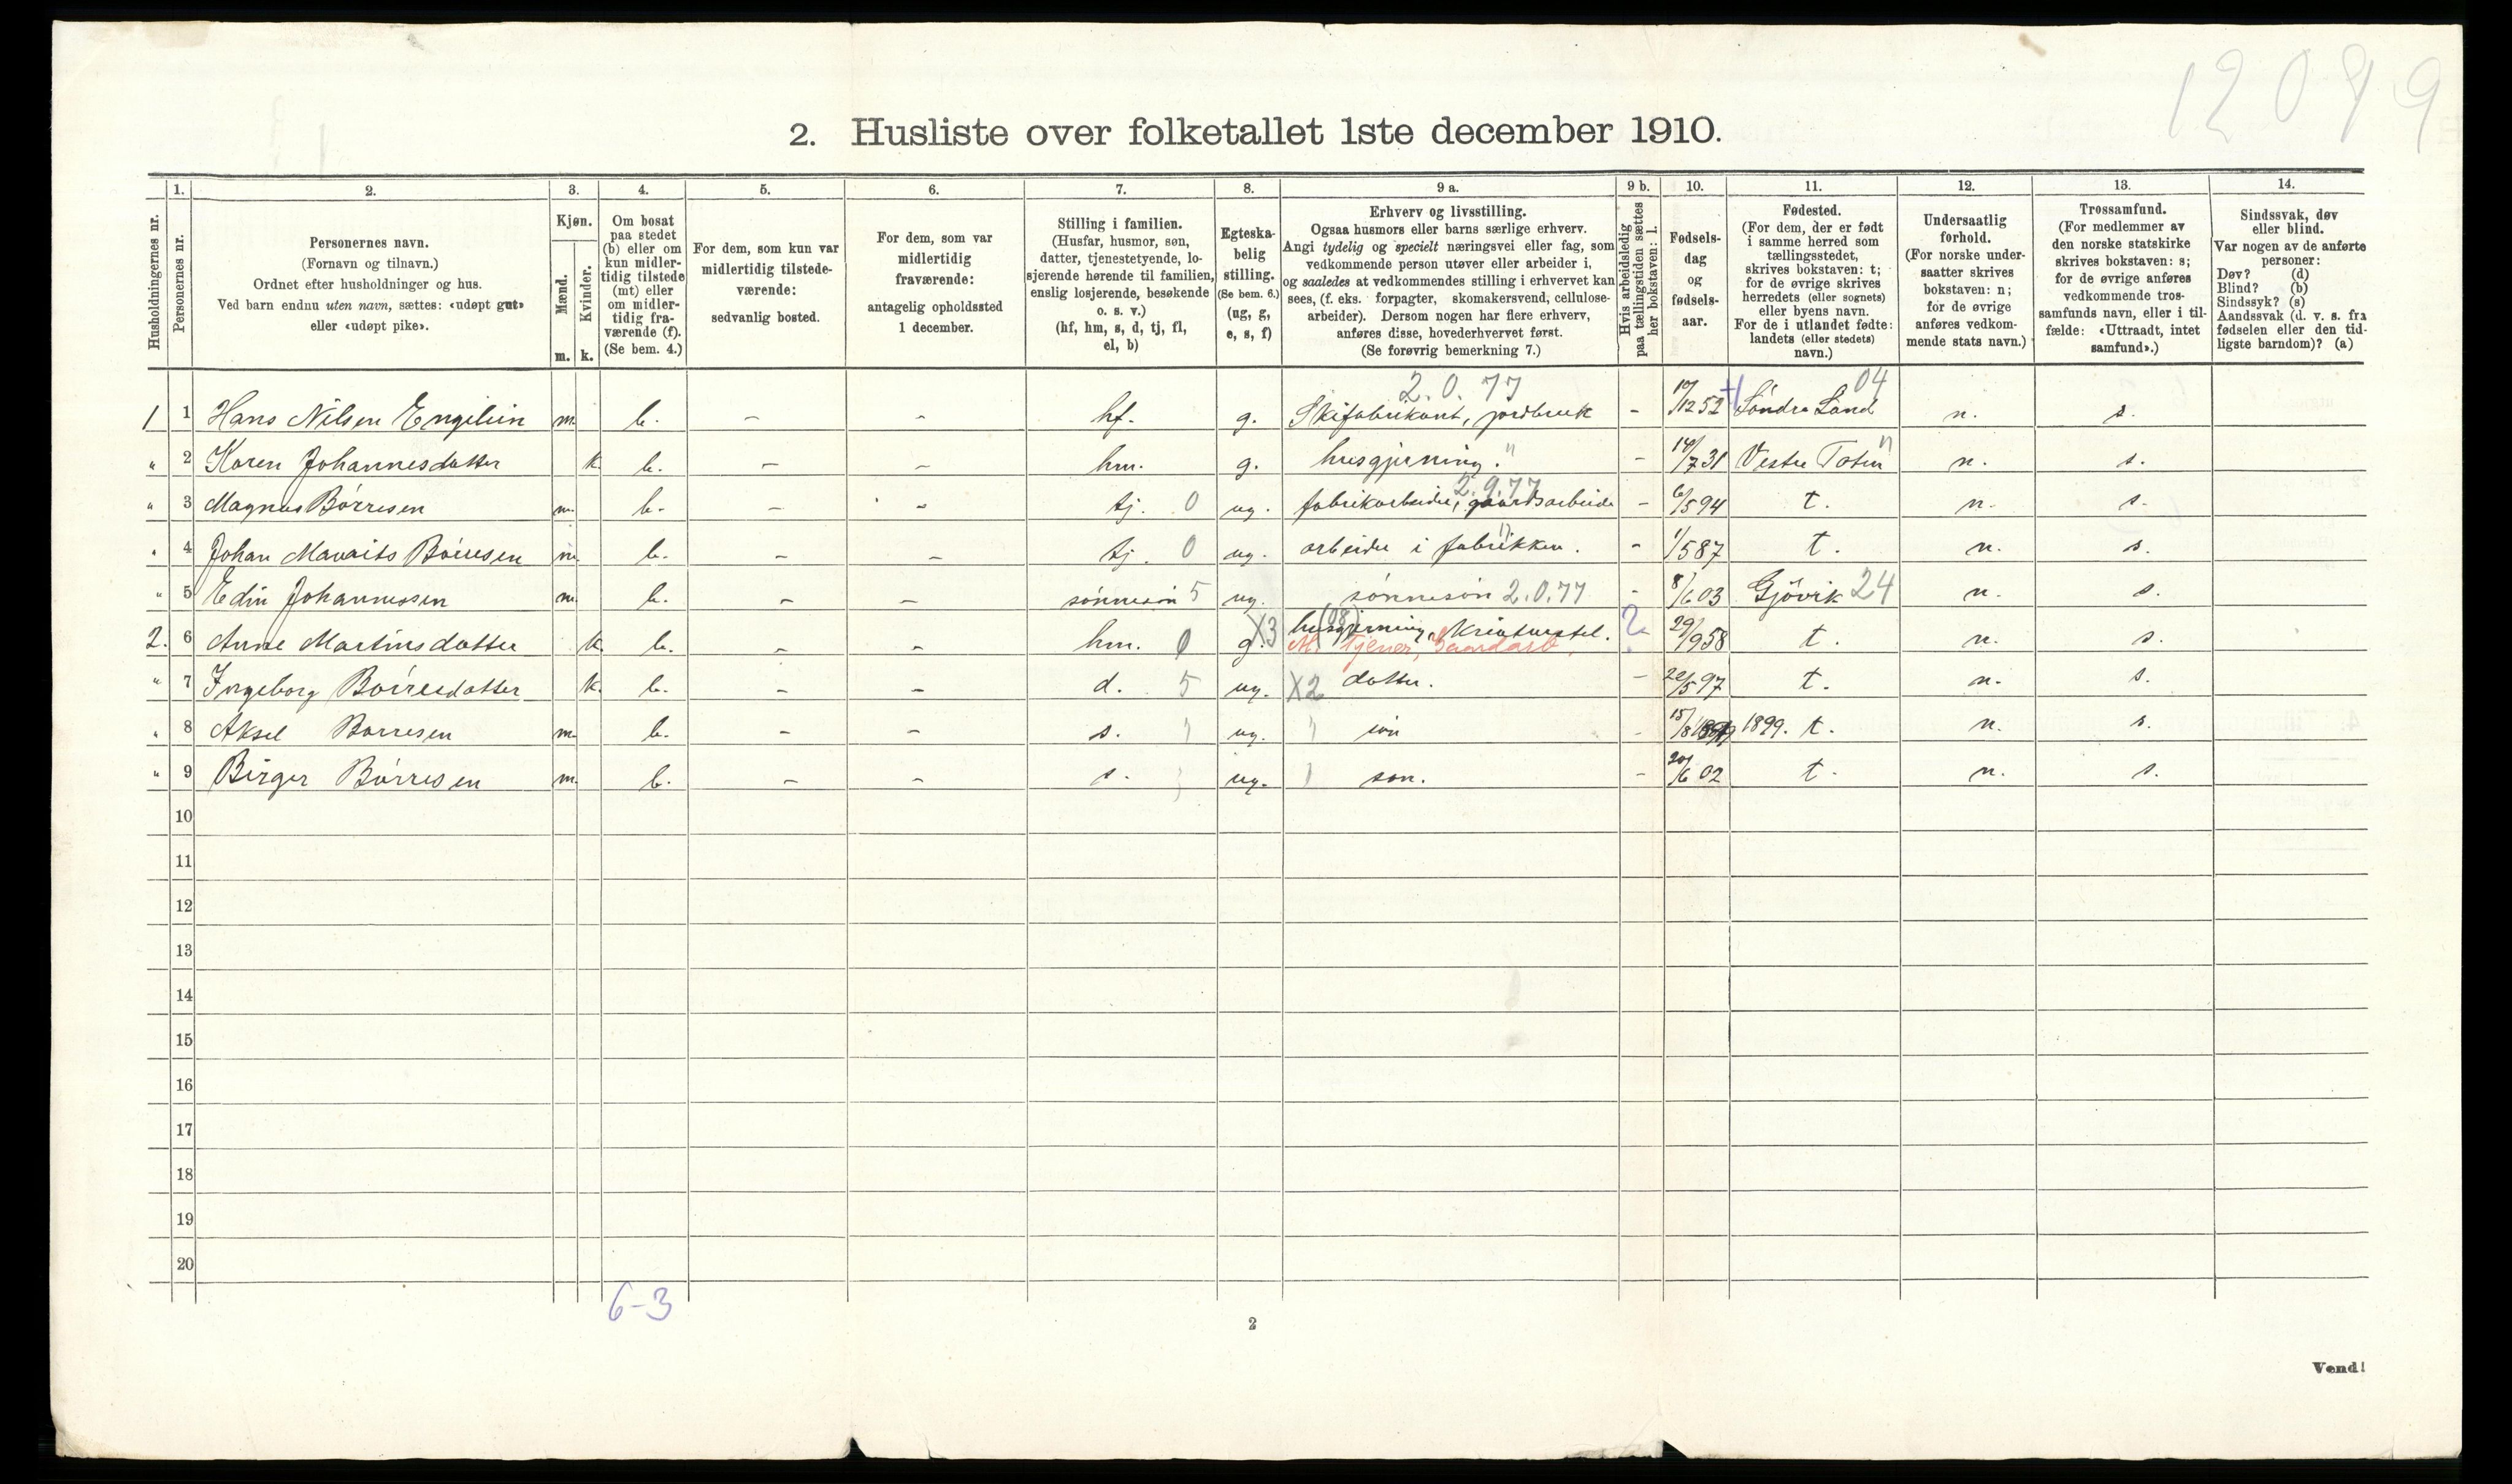 12099
2. Husliste over folketallet 1ste december 1910.
1. 2. 3. 4. 5. 6. 7. 8. 9 a. 9 b. 10. 11. 12. 13. 14.
Husholdningernes nr.
Personernes nr.
Personernes navn.
(Fornavn og tilnavn.)
Ordnet efter husholdninger og hus.
Ved barn endnu uten navn, sættes: «udøpt gut»
eller «udøpt pike».
Kjøn.
Mænd.
m.
Kvinder.
k.
Om bosat
paa stedet
(b) eller om
kun midler-
tidig tilstede
(mt) eller
om midler-
tidig fra-
værende (f).
(Se bem. 4.)
For dem, som kun var
midlertidig tilstede-
værende:
sedvanlig bosted.
For dem, som var
midlertidig
fraværende:
antagelig opholdssted
1 december.
Stilling i familien.
(Husfar, husmor, søn,
datter, tjenestetyende, lo-
sjerende hørende til familien,
enslig losjerende, besøkende
o. s. v.)
(hf, hm, s, d, tj, fl,
el, b)
Egteska-
belig
stilling.
(Se bem. 6.)
(ug, g,
e, s, f)
Erhverv og livsstilling.
Ogsaa husmors eller barns særlige erhverv.
Angi tydelig og specielt næringsvei eller fag, som
vedkommende person utøver eller arbeider i,
og saaledes at vedkommendes stilling i erhvervet kan
sees, (f. eks. forpagter, skomakersvend, cellulose-
arbeider). Dersom nogen har flere erhverv,
anføres disse, hovederhvervet først.
(Se forøvrig bemerkning 7.)
Hvis arbeidsledig
paa tællingstiden sættes
her bokstaven: l.
Fødsels-
dag
og
fødsels-
aar.
Fødested.
(For dem, der er født
i samme herred som
tællingsstedet,
skrives bokstaven: t;
for de øvrige skrives
herredets (eller sognets)
eller byens navn.
For de i utlandet fødte:
landets (eller stedets)
navn.)
Undersaatlig
forhold.
(For norske under-
saatter skrives
bokstaven: n;
for de øvrige
anføres vedkom-
mende stats navn.)
Trossamfund.
(For medlemmer av
den norske statskirke
skrives bokstaven: s;
for de øvrige anføres
vedkommende tros-
samfunds navn, eller i til-
fælde: «Uttraadt, intet
samfund».)
Sindssvak, døv
eller blind.
Var nogen av de anførte
personer:
Døv? (d)
Blind? (b)
Sindssyk? (s)
Aandssvak (d. v. s. fra
fødselen eller den tid-
ligste barndom)? (a)
2.0.77 04
1 1 Hans Nilsen Engelien m. b. - - hf. g. Skifabrikant, jordbruk - 17/12 52 Søndre Land n. s.
" 2 Karen Johannesdatter k. b. - - hm. g. husgjerning. " - 14/7 31 Vestre Toten " n. s.
2.9.77
" 3 Magnus Børresen m. b. - - tj. 0 ug. fabrikarbeider, gaardsarbeide - 6/5 94 t. n. s.
" 4 Johan Maurits Børresen m. b. - - tj. 0 ug. arbeider i fabrikken. " - 1/5 87 t. n. s.
" 5 Edin Johannessen m. b. - - sønnesøn 5 ug. sønnesøn 2.0.77 - 8/6 03 Gjøvik 24 n. s.
2. 6 Anne Martinsdatter k. b. - - hm. 0 g. X3 husgjerning, Kreaturstel. (08) ? 29/9 58 t. n. s.
M. tjener, Gaardarb.
" 7 Ingeborg Børresdatter k. b. - - d. 5 ug. X2 datter. - 22/5 97 t. n. s.
" 8 Aksel Børresen m. b. - - s. ug. søn - 15/8 1899. t. n. s.
" 9 Birger Børresen m. b. - - s. ug. søn. - 20/6 02 t. n. s.
10
11
12
13
14
15
16
17
18
19
20
6-3
2
Vend!